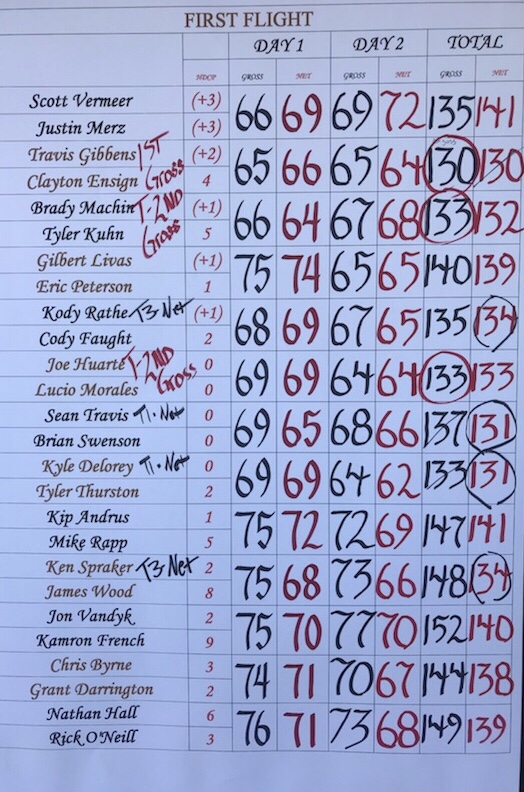 FIRST FLIGHT
DAY 1 DAY 2 TOTAL
HDCP GROSS NET GROSS NET GROSS NET
Scott Vermeer (+3) 66 69 69 72 135 141
Justin Merz (+3)
Travis Gibbens 1ST Gross (+2) 65 66 65 64 130 130
Clayton Ensign 4
Brady Machin T-2ND Gross (+1) 66 64 67 68 133 132
Tyler Kuhn 5
Gilbert Livas (+1) 75 74 65 65 140 139
Eric Peterson 1
Kody Rathe T3-Net (+1) 68 69 67 65 135 134
Cody Faught 2
Joe Huarte T-2ND Gross 0 69 69 64 64 133 133
Lucio Morales 0
Sean Travis T1-Net 0 69 65 68 66 137 131
Brian Swenson 0
Kyle Delorey T1-Net 0 69 69 64 62 133 131
Tyler Thurston 2
Kip Andrus 1 75 72 72 69 147 141
Mike Rapp 5
Ken Spraker T3-Net 2 75 68 73 66 148 134
James Wood 8
Jon Vandyk 2 75 70 77 70 152 140
Kamron French 9
Chris Byrne 3 74 71 70 67 144 138
Grant Darrington 2
Nathan Hall 6 76 71 73 68 149 139
Rick O'Neill 3